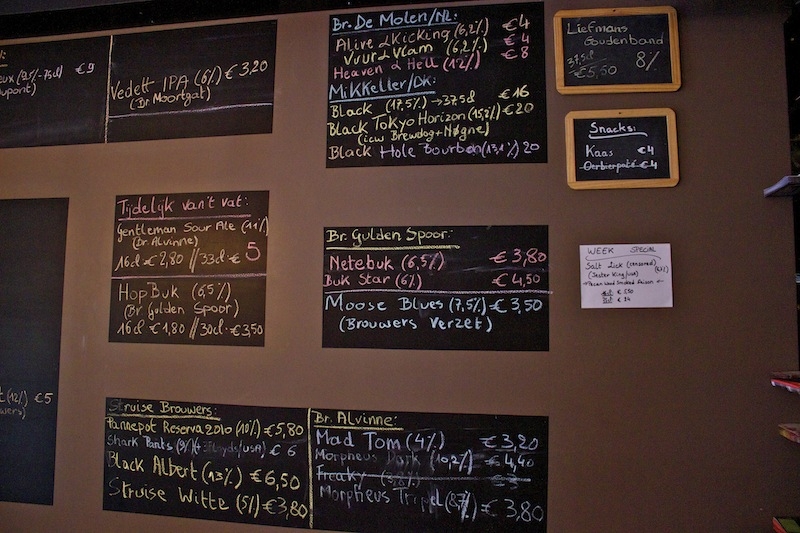 (9,5%-75cl) €9
Vedett IPA (6%) €3,20
(Br Moortgat)
Br. De Molen/NL:
Alive & Kicking (6,2%) €4
Vuur & Vlam (6,2%) €4
Heaven & Hell (12%) €8
Mikkeller/DK:
Black (17,5%) → 37.5cl €16
Black Tokyo Horizon (15,2%) €20
(icw Brewdog + Nøgne)
Black Hole Bourbon (13,1%) 20
Liefmans
Goudenband
37,5cl 8%
€5,50
Snacks:
Kaas €4
Oerbierpaté €4
Tijdelijk van't vat:
Gentleman Sour Ale (11%)
(Br Alvinne)
16cl €2,80 // 33cl €5
HopBuk (6,5%)
(Br Gulden Spoor)
16cl €1,80 // 30cl €3,50
Br. Gulden Spoor:
Netebuk (6,5%) €3,80
Buk Star (6%) €4,50
Moose Blues (7,5%) €3,50
(Brouwers Verzet)
WEEK SPECIAL
Salt Lick (censored)
(Jester King/USA)
Pecan Wood Smoked Saison
(12%) €5
Struise Brouwers:
Pannepot Reserva 2010 (10%) €5,80
Shark Pants (9%) /USA) €6
Black Albert (13%) €6,50
Struise Witte (5%) €3,80
Br. Alvinne:
Mad Tom (4%) €3,20
Morpheus Dark (10,2%) €4,40
Freaky (3,8%)
Morpheus Tripel (8,7%) €3,80